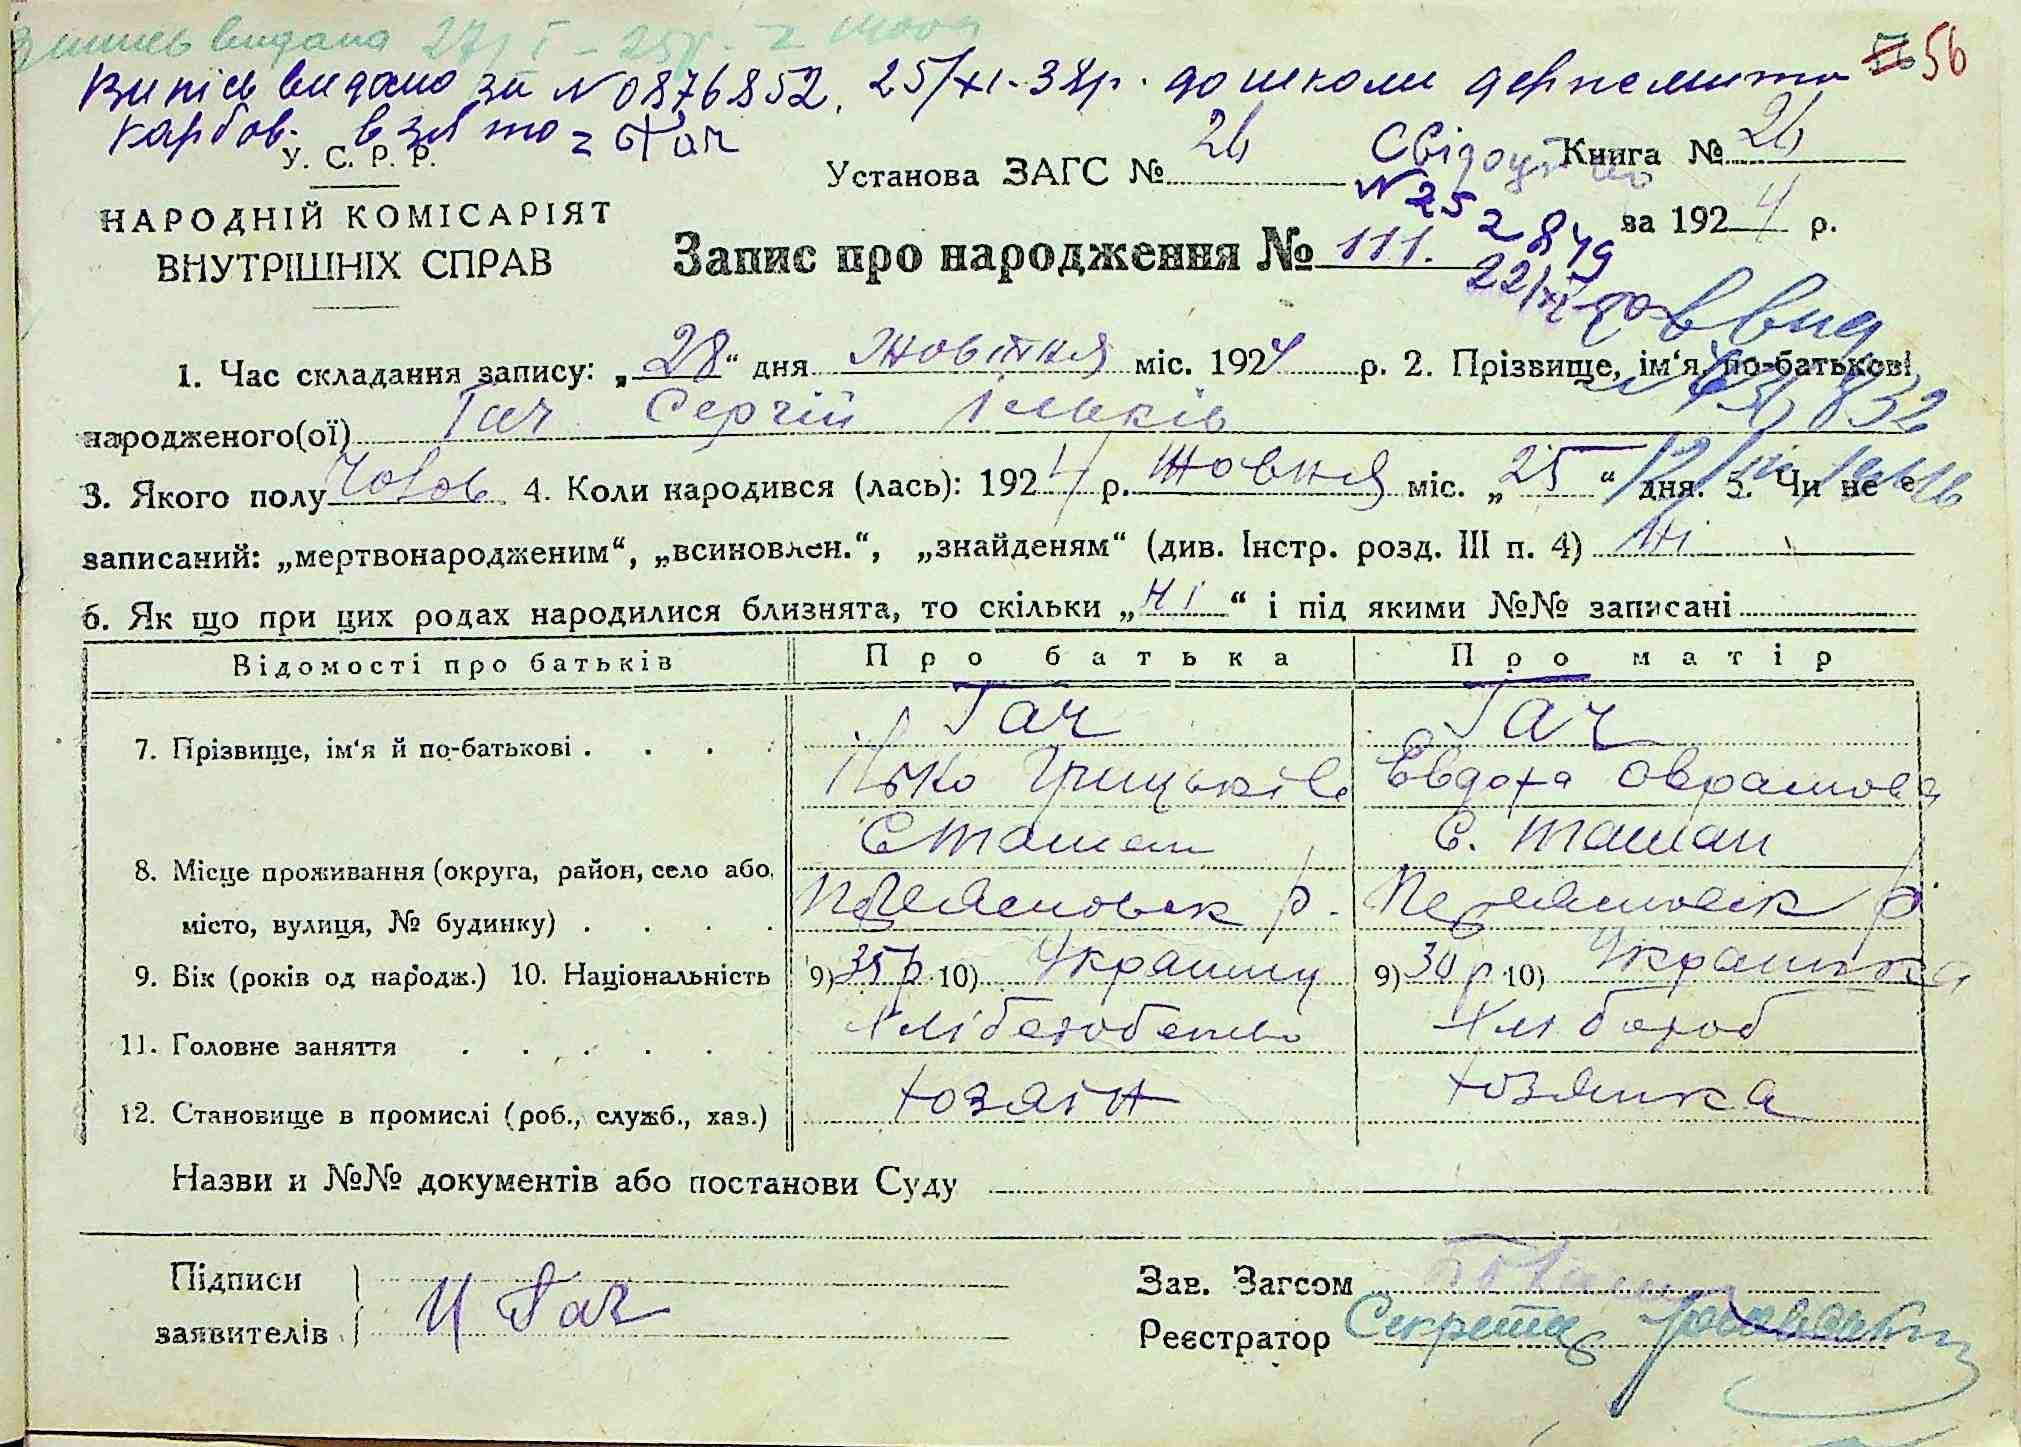 випись видана 27/I – 25р.
Випісь видано за № 0876852, 25/XI-38р. до школи держ мито
карбов. взято Гач
56
У. С. Р. Р.
Установа ЗАГС № 26
Свідоцтво
Книга № 26
№ 252849
НАРОДНІЙ КОМІСАРІЯТ
за 1924 р.
ВНУТРІШНІХ СПРАВ
Запис про народження № 111.
1. Час складання запису: „28“ дня Жовтня міс. 1924 р. 2. Прізвище, ім‘я, по-батькові
народженого(ої) Гач Сергій Ільків
3. Якого полу Чолов 4. Коли народився (лась): 1924 р. Жовня міс. „25“ дня. 5. Чи не є
записаний: „мертвонародженим“, „всиновлен.“, „знайденям“ (див. Інстр. розд. III п. 4) Ні
6. Як що при цих родах народилися близнята, то скільки „Ні“ і під якими №№ записані
Відомості про батьків Про батька Про матір
7. Прізвище, ім‘я й по-батькові . . . . Гач Гач
Ілько Грицьків Євдоха Оврамова
С Ташан С. Ташан
8. Місце проживання (округа, район, село або,
місто, вулиця, № будинку) . . . . Переяславск р. Переяславск р.
9. Вік (років од нарόдж.) 10. Національність 9) 35 р 10) Украинц 9) 30 р 10) Украинка
11. Головне заняття . . . . . . Хліборобство Хлібороб
12. Становище в промислі (роб., служб., хаз.) Хозяін Хозяйка
Назви и №№ документів або постанови Суду
Підписи
заявителів И Гач
Зав. Загсом
Реєстратор Секретар